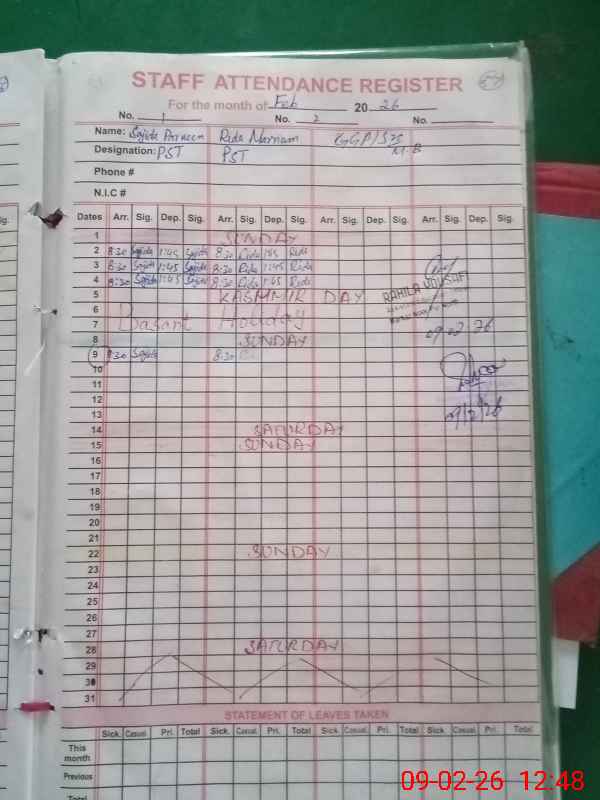 STAFF ATTENDANCE REGISTER
For the month of Feb 20 26
No. 1 No. 2 No.
Name: Sajida Parveen Rida Marriam GGP/S
Designation: PST PST M.B
Phone #
N.I.C #
Dates Arr. Sig. Dep. Sig. Arr. Sig. Dep. Sig. Arr. Sig. Dep. Sig. Arr. Sig. Dep. Sig.
1 SUNDAY
2 8:30 Sajida 1:45 Sajida 8:30 Rida 1:45 Rida
3 8:30 Sajida 1:45 Sajida 8:30 Rida 1:45 Rida
4 8:30 Sajida 1:45 Sajida 8:30 Rida 1:45 Rida
5 KASHMIR DAY
RAHILA YOUSAF
6
7 Basant Holiday
09.02.26
8 SUNDAY
9 8:30 Sajida 8:30
10
11
12
13
09/2/26
14 SATURDAY
15 SUNDAY
16
17
18
19
20
21
22 SUNDAY
23
24
25
26
27
28 SATURDAY
29
30
31
STATEMENT OF LEAVES TAKEN
Sick. Casual. Pri. Total Sick. Casual. Pri. Total Sick. Casual. Pri. Total Sick. Casual. Pri. Total
This month
Previous
Total
09-02-26 12:48